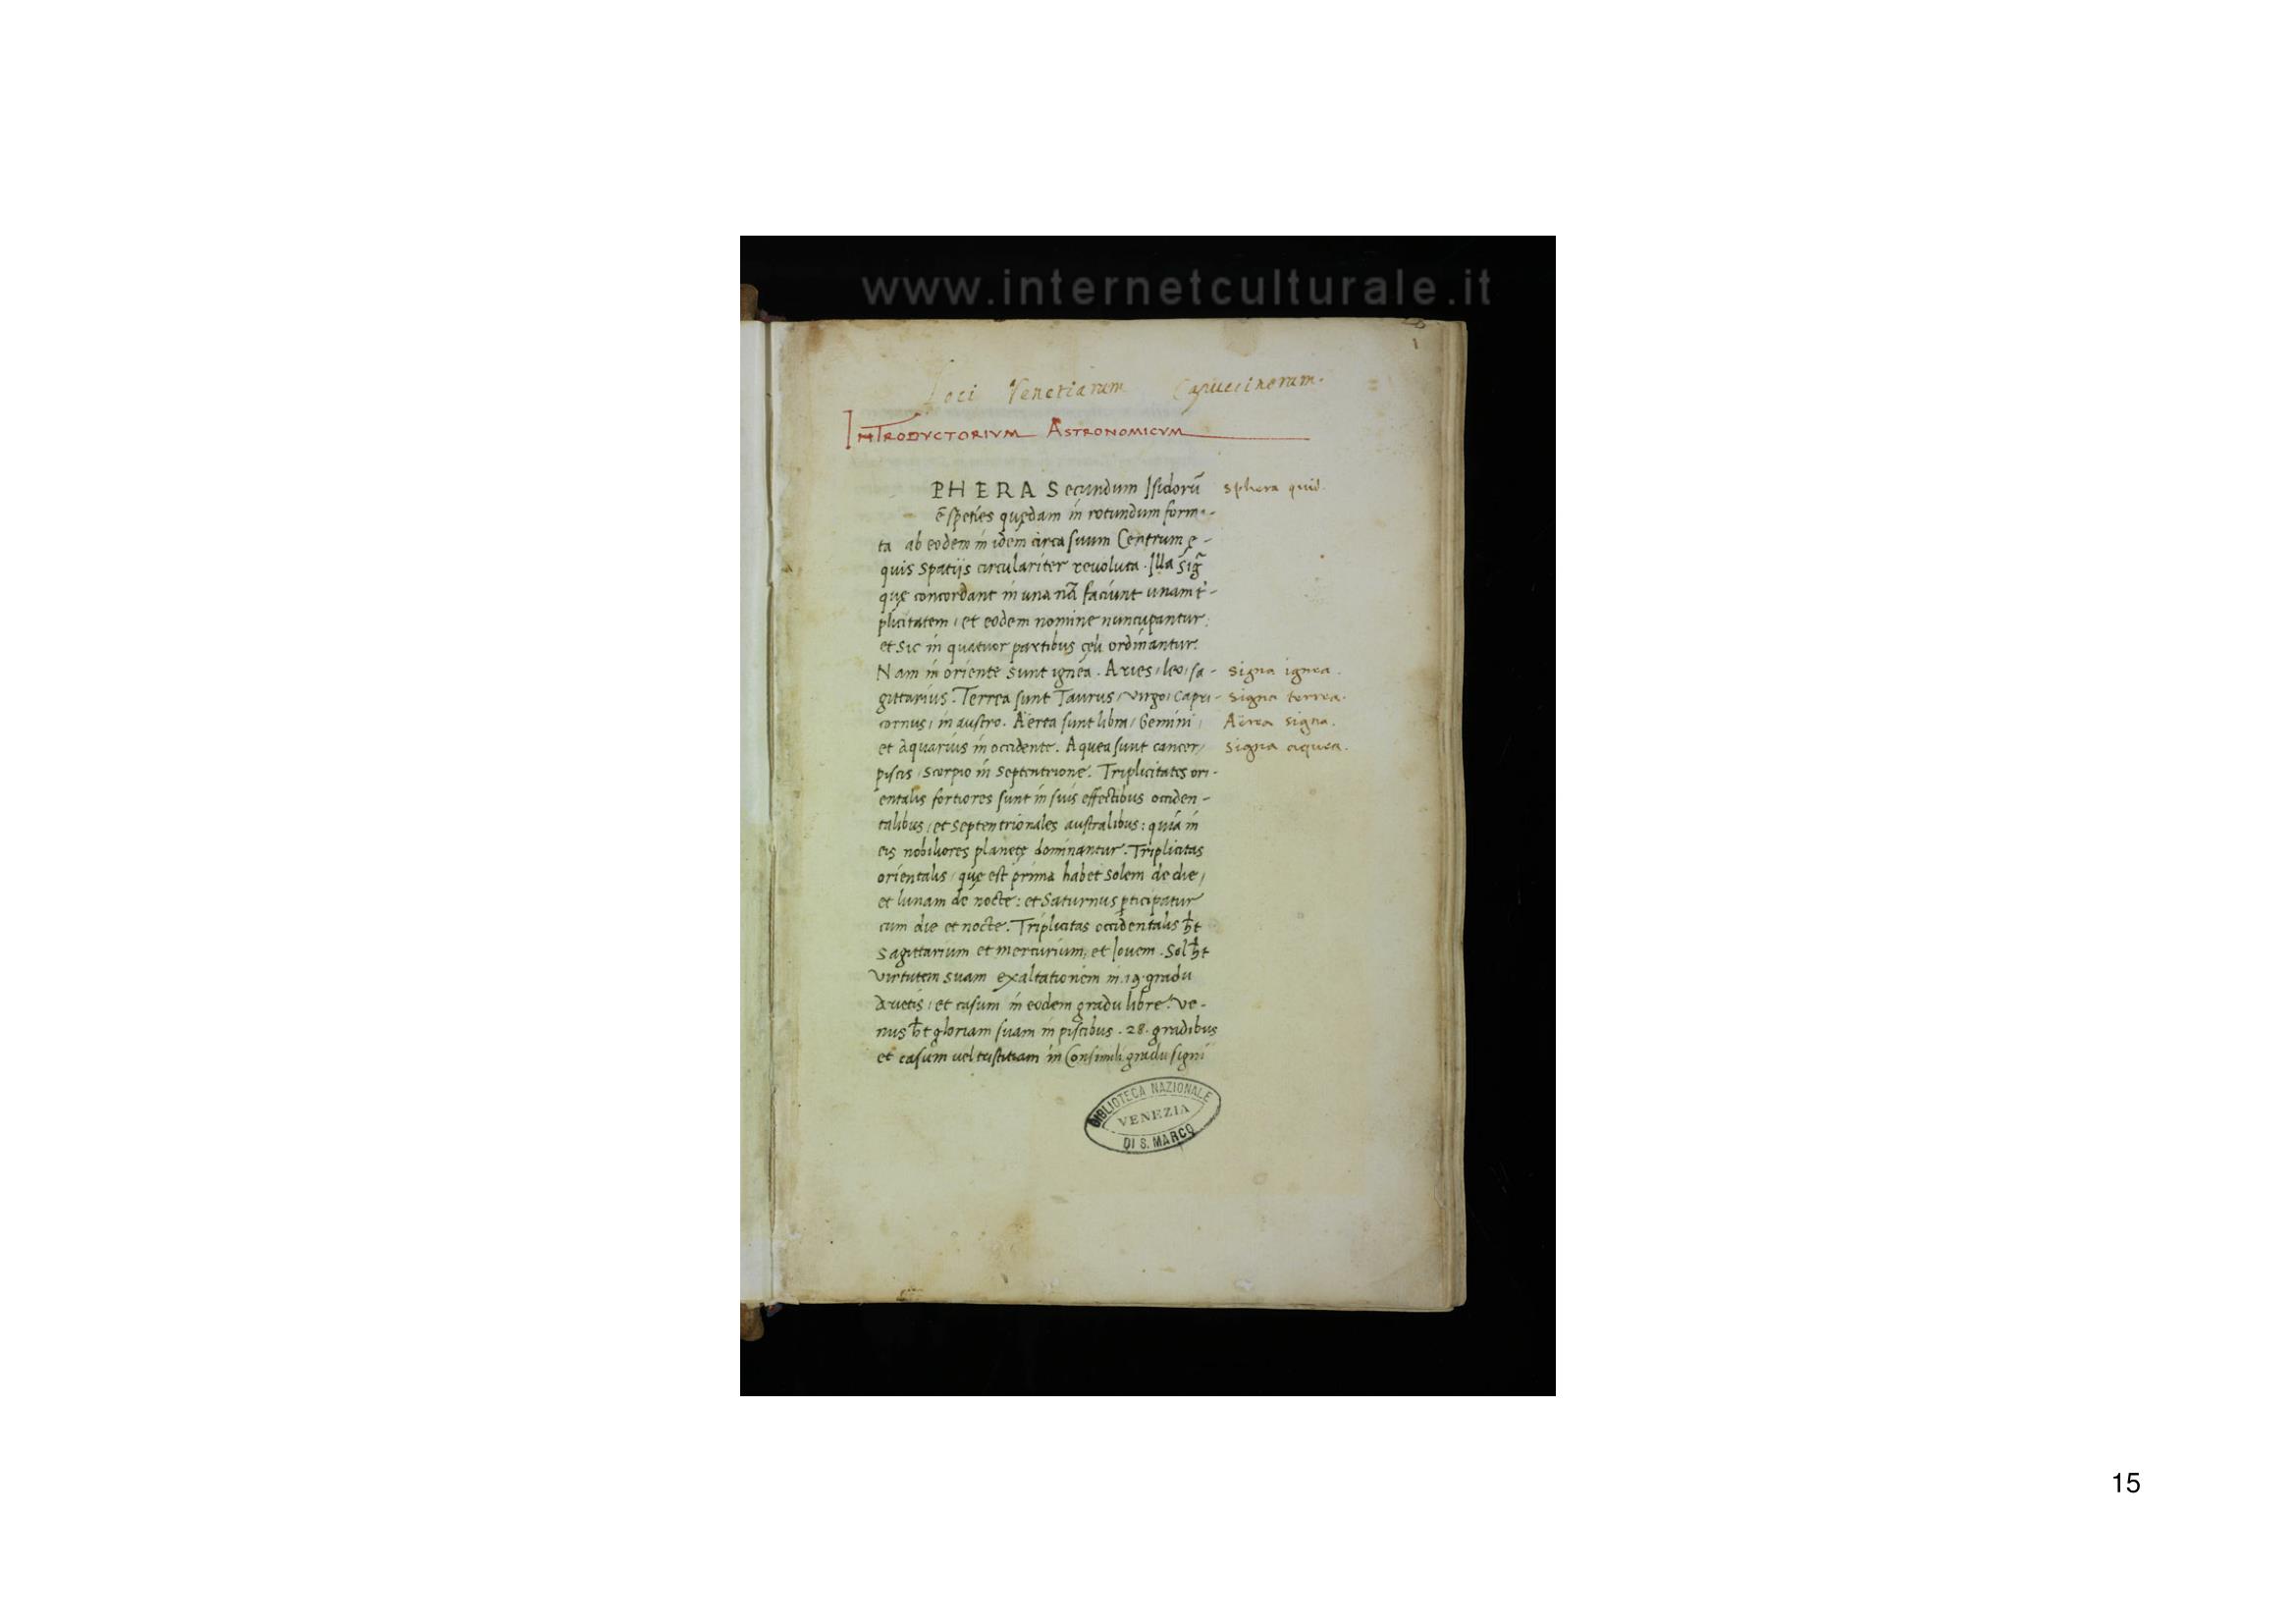 www.internetculturale.it
1
Loci Venetiarum Capuccinorum.
INTRODVCTORIVM ASTRONOMICVM
PHERA Secundum Isidorū sphera quid.
ē spēties quędam in rotundum forma-
ta ab eodem in idem circa suum Centrum ę-
quis spatijs circulariter reuoluta. Illa sig̃
quę concordant in una nā faciunt unam t'-
plicitatem, et eodem nomine nuncupantur:
et sic in quatuor partibus cęli ordinantur.
Nam in oriente sunt ignea. Aries, leo, sa- signa ignea.
gittarius. Terrea sunt Taurus, virgo, Capri- signa terrea.
cornus, in austro. Aërea sunt libra, Gemini, Aërea signa.
et aquarius in occidente. Aquea sunt cancer, signa aquea.
piscis, scorpio in septentrione. Triplicitates ori-
entalis fortiores sunt in suis effectibus occiden-
talibus, et septentrionales australibus: quia in
eis nobiliores planetę dominantur. Triplicitas
orientalis, quę est prima habet solem de die,
et lunam de nocte: et Saturnus ꝑticipatur
cum die et nocte. Triplicitas occidentalis ħt
sagittarium et mercurium, et Iouem. Sol ħt
virtutem suam exaltationem in .19. gradu
Arietis, et casum in eodem gradu librę. ve-
nus ħt gloriam suam in piscibus .28. gradibus
et casum uel tristitiam in Consimili gradu signi
BIBLIOTECA NAZIONALE
VENEZIA
DI S. MARCO
15